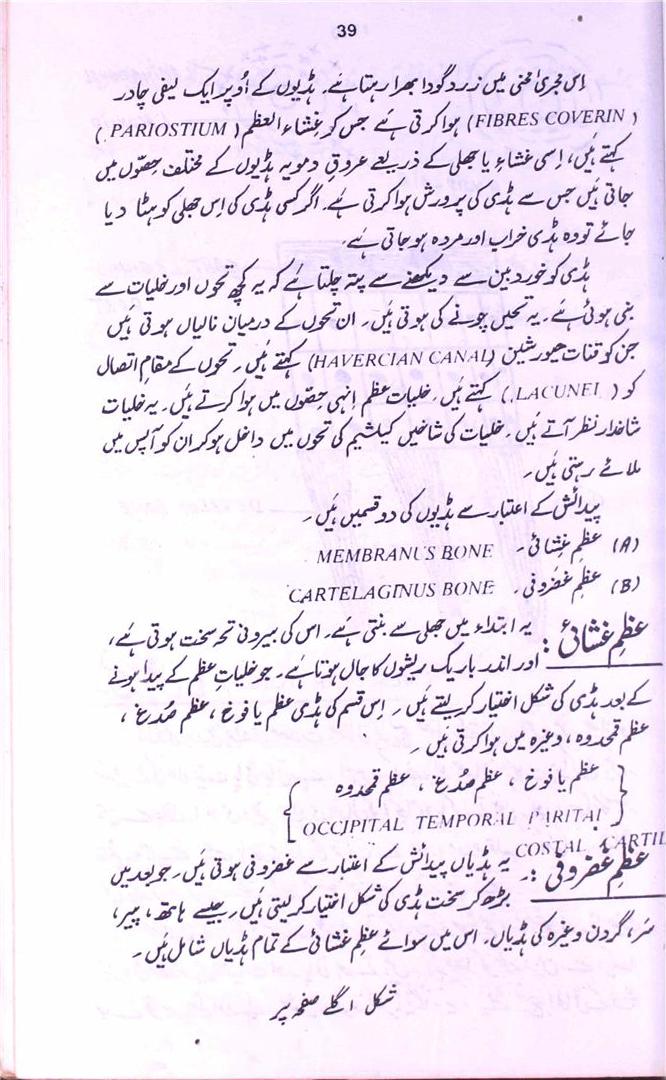 39
اس مجریٰ مخی میں زرد گودا بھرا رہتا ہے۔ ہڈیوں کے اُوپر ایک لیفی چادر
(FIBRES COVERIN) ہوا کرتی ہے جس کو غشاء العظم (PARIOSTIUM)
کہتے ہیں، اِسی غشاءِ یا جھلی کے ذریعے عروقِ دمویہ ہڈیوں کے مختلف حصّوں میں
جاتی ہیں جس سے ہڈی کی پرورش ہوا کرتی ہے۔ اگر کسی ہڈی کی اِس جھلی کو ہٹا دیا
جائے تو وہ ہڈی خراب اور مردہ ہو جاتی ہے۔
ہڈی کو خوردبین سے دیکھنے سے پتہ چلتا ہے کہ یہ کچھ تحوں اور خلیات سے
بنی ہوئی ہے۔ یہ تحیں چونے کی ہوتی ہیں۔ ان تحوں کے درمیان نالیاں ہوتی ہیں
جن کو قنات حیورشین (HAVERCIAN CANAL) کہتے ہیں۔ تحوں کے مقامِ اتصال
کو (LACUNEI) کہتے ہیں۔ خلیات عظم اِنہی حصّوں میں ہوا کرتے ہیں۔ یہ خلیات
شاخدار نظر آتے ہیں۔ خلیات کی شاخیں کیلشیم کی تحوں میں داخل ہو کر ان کو آپس میں
ملائے رہتی ہیں۔
پیدائش کے اعتبار سے ہڈیوں کی دو قسمیں ہیں۔
(A) عظمِ غشائی۔ MEMBRANUS BONE
(B) عظمِ غضروفی۔ CARTELAGINUS BONE
عظمِ غشائی: یہ ابتداء میں جھلی سے بنتی ہے۔ اس کی بیرونی تحہ سخت ہوتی ہے،
اور اندر باریک ریشوں کا جال ہوتا ہے۔ جو خلیاتِ عظم کے پیدا ہونے
کے بعد ہڈی کی شکل اختیار کر لیتے ہیں۔ اِس قسم کی ہڈی عظم یا فوخ، عظم صُدغ،
عظم قمحدوہ، وغیرہ میں ہوا کرتی ہیں۔
عظم یا فوخ، عظم صُدغ، عظم قمحدوہ
OCCIPITAL TEMPORAL PARITAI
COSTAL CARTIL
عظمِ غضروفی: یہ ہڈیاں پیدائش کے اعتبار سے غضروفی ہوتی ہیں۔ جو بعد میں
بڑھ کر سخت ہڈی کی شکل اختیار کر لیتی ہیں۔ جیسے ہاتھ، پیر،
سَر، گردن وغیرہ کی ہڈیاں۔ اس میں سوائے عظمِ غشائی کے تمام ہڈیاں شامل ہیں۔
شکل اگلے صفحہ پر